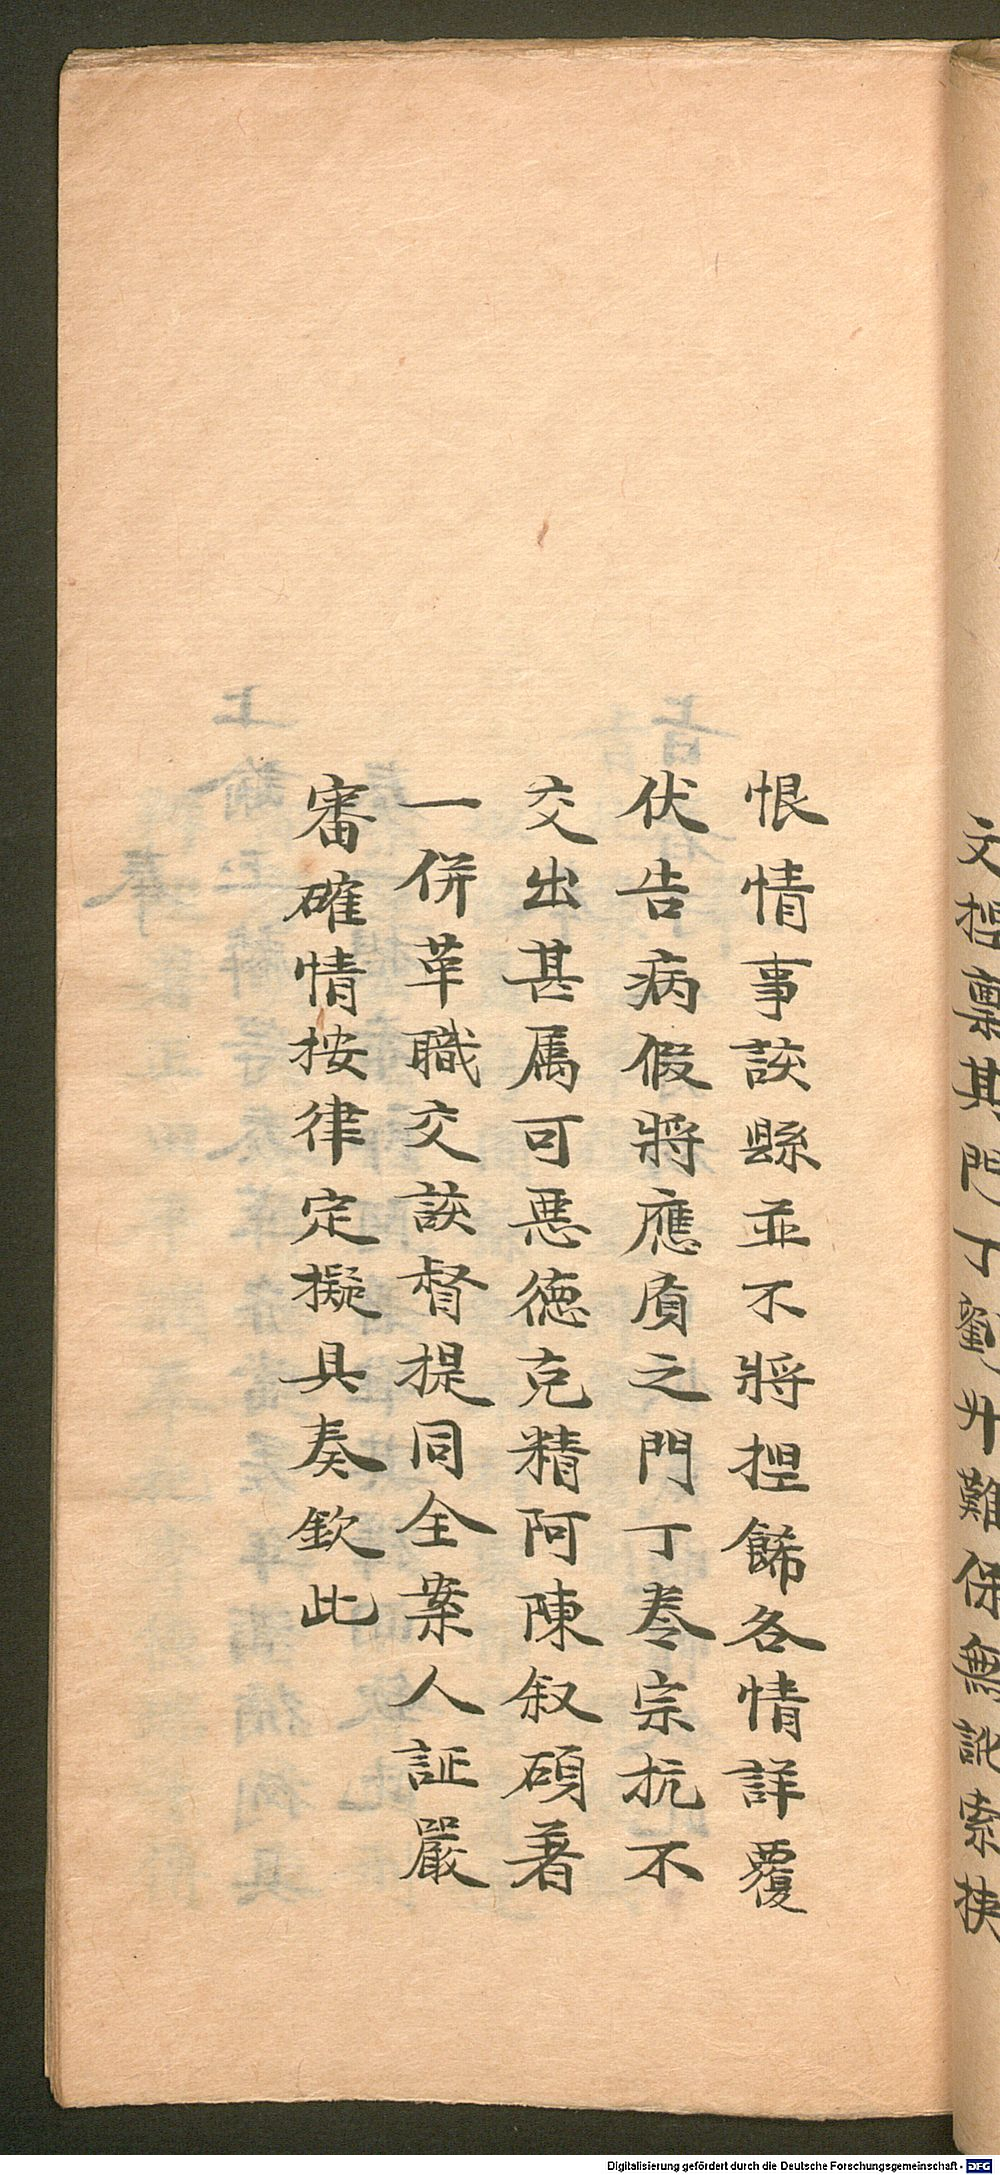 文揑稟其門丁劉升難保無訛索挾
恨情事該縣並不將揑餙各情詳覆
伏告病假將應質之門丁卷宗抗不
交出甚屬可惡德克精阿陳叙碩着
一併革職交該督提同全案人証嚴
審確情按律定擬具奏欽此
Digitalisierung gefördert durch die Deutsche Forschungsgemeinschaft - DFG